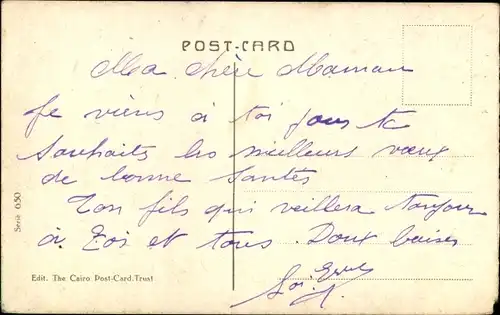 POST-CARD
Ma chère Maman
Je viens à toi pour te
souhaiter les meilleurs vœux
de bonne santés
Ton fils qui veillera toujour
à toi et tous. Doux baises
Serie 650
Edit. The Cairo Post-Card.Trust